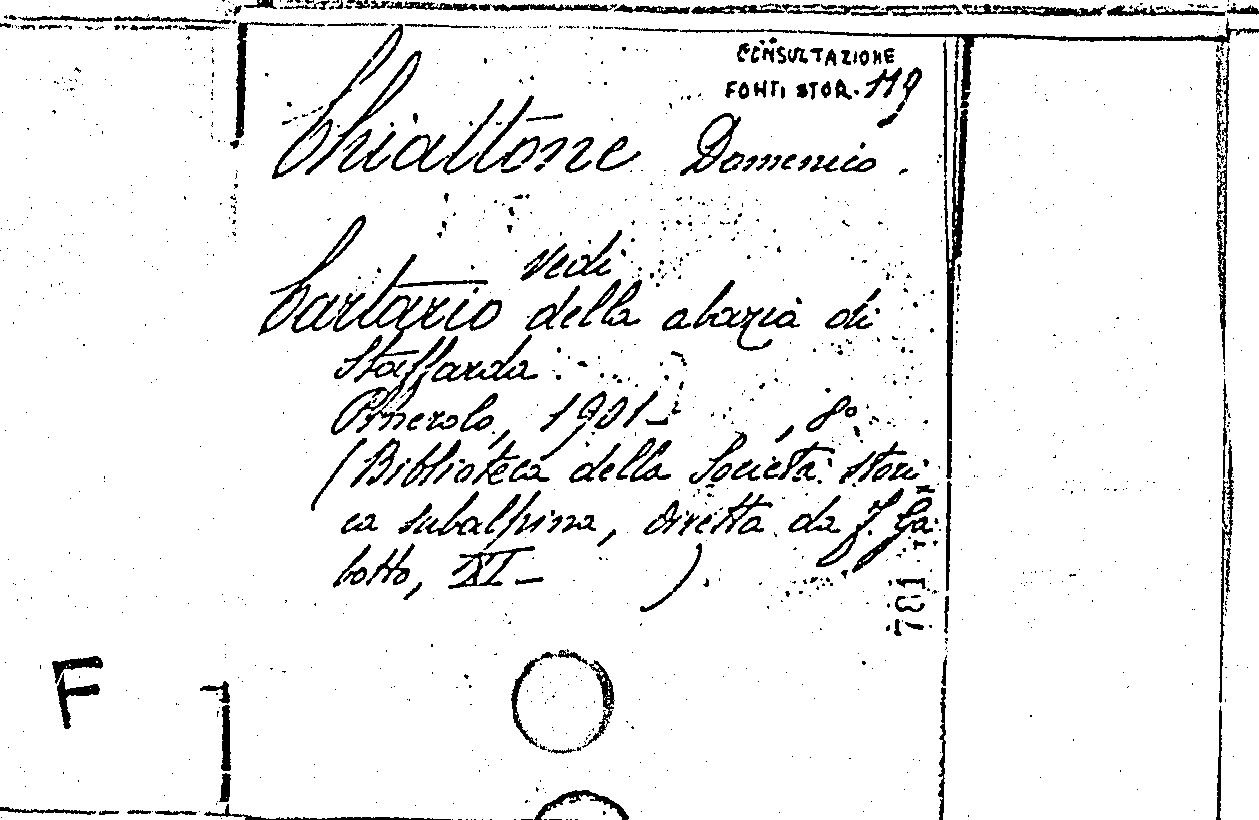 CONSULTAZIONE
FONTI STOR. 119
Chiattone Domenico.
Vedi
Cartario della abazia di
Staffarda.
Pinerolo, 1901- , 8º
(Biblioteca della Società stori
ca subalpina, diretta da F. Ga
botto, XI- ).
F